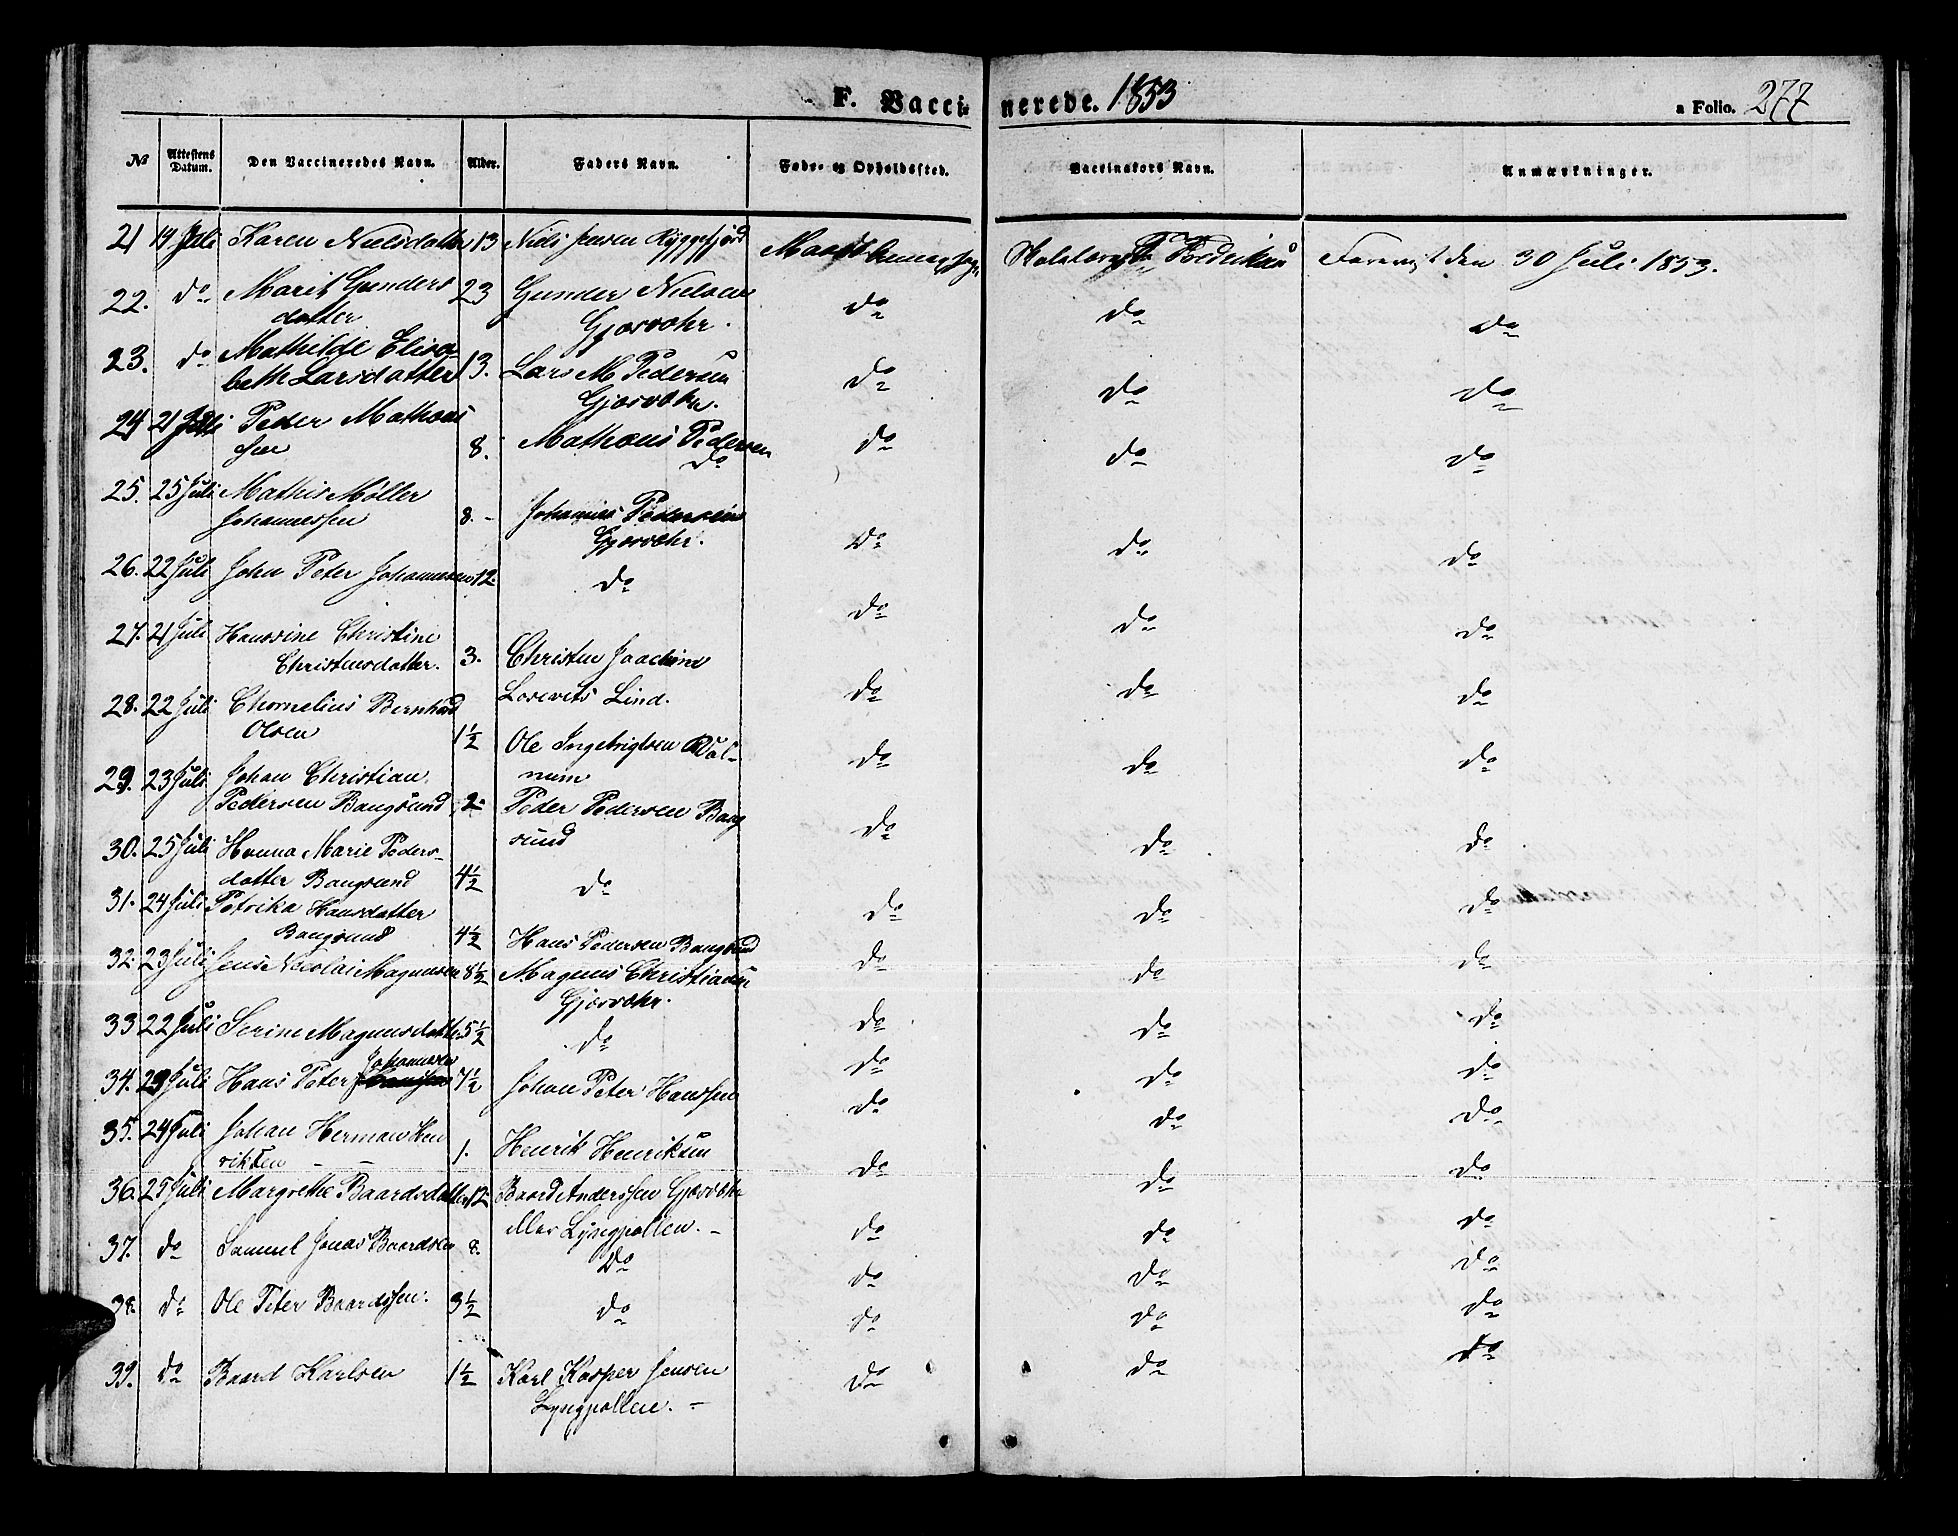 F. Vaccinerede. 1853 a Folio. 277
No Attestens Datum. Den Vaccineredes Navn. Alder. Faders Navn. Føde- og Opholdssted. Vaccinators Navn. Anmærkninger.
21 14 Juli Karen Nielsdatter 13 Niels Jensen Foreviist den 30 Juli 1853.
22. do Marit Gunders 23 Gunder Nielsen do do do
datter Gjæsvæhr.
23. do Mathilde Elisa- 13. Lars M. Pedersen do do do
beth Larsdatter Gjæsvæhr.
24 21 Juli Peder Mathæus 8. Mathæus Pedersen do do do
sen do
25. 25 Juli Mathis Møller 8. - Johannes Pedersen do do do
Johannessen Gjæsvæhr.
26. 22 Juli John Peter Johannesen 12. do do do do
27. 21 Juli Hansine Christine 3. Christen Joachim do do do
Christensdatter. Lorents Lind.
28. 22 Juli Chornelius Bernhard 1½ Ole Ingebrigtsen Val- do do do
Olsen num
29. 23 Juli Johan Christian 2. Peder Pedersen Bang do do do
Pedersen Bangsund sund
30. 25 Juli Hanna Marie Peders- 4½ do do do do
datter Bangsund
31. 24 Juli Petrika Hansdatter 4½ Hans Pedersen Bangsund do do do
Bangsund
32. 23 Juli Jens Nicolai Magnussen 8½ Magnus Christiansen do do do
Gjæsvæhr.
33 22 Juli Serine Magnusdatter 5½ do do do do
34. 23 Juli Hans Peter Johannesen 7½ Johan Peter Hanssen do do do
35. 24 Juli Johan Herman Hen 1. Henrik Henriksen do do do
riksen
36. 25 Juli Margrethe Baardsdatter 12 Baard Anderssen Gjæsvæhr do do do
eller Lyngpollen. -
37. do Samuel Jonas Baardsen 8. do do do do
38. do Ole Peter Baardssen. 3½ do do do do
39. do Baard Karlsen 1½ Karl Kasper Jensen do do do
Lyngpollen. -